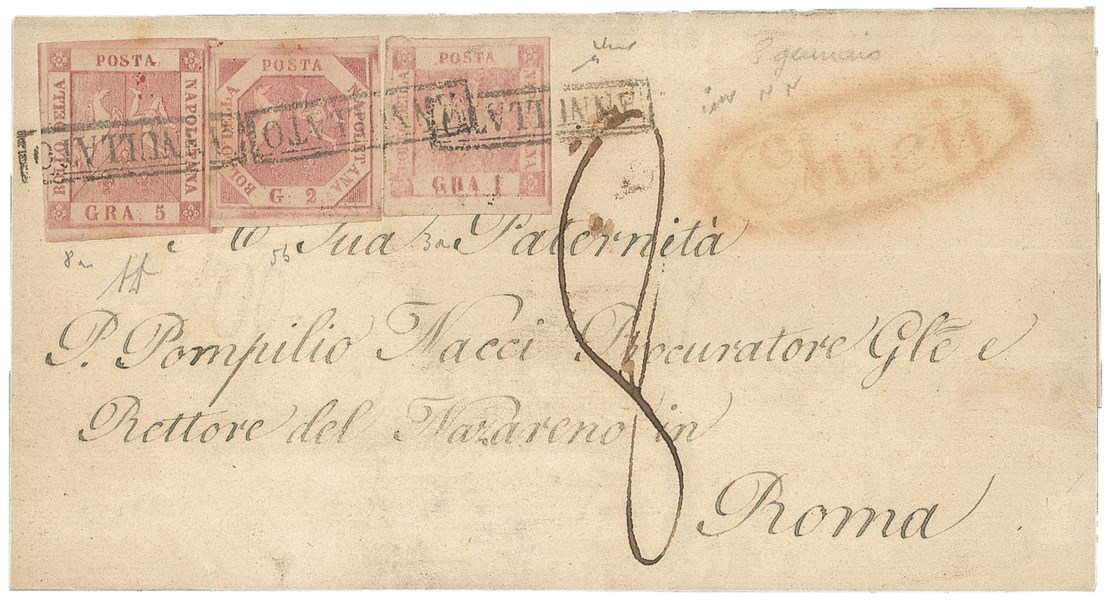 POSTA
BOLLO DELLA
NAPOLETANA
GRA 5
POSTA
BOLLO DELLA
NAPOLITANA
G. 2
POSTA
BOLLO DELLA
NAPOLETANA
GRA 1
ANNULLATO
ANNULLATO
ANNULLATO
3 gennaio
8
A Sua Paternità
8a
5b
3a
P. Pompilio Nacci Procuratore Glē e
Rettore del Nazareno in
Roma